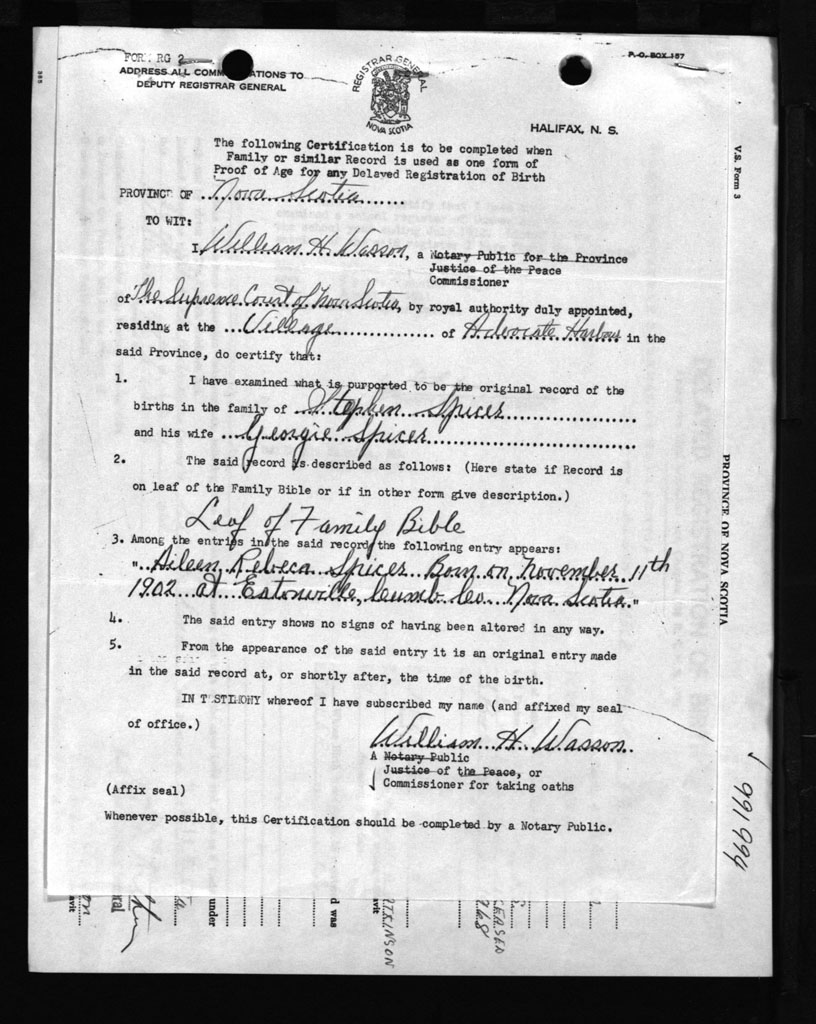 FORM RG 2
P. O. BOX 157
ADDRESS ALL COMM ATIONS TO
DEPUTY REGISTRAR GENERAL
REGISTRAR GENERAL
NOVA SCOTIA
HALIFAX, N. S.
The following Certification is to be completed when
Family or similar Record is used as one form of
Proof of Age for any Delayed Registration of Birth
PROVINCE OF Nova Scotia
TO WIT:
I William H. Wasson, a Notary Public for the Province
Justice of the Peace
Commissioner
of The Supreme Court of Nova Scotia, by royal authority duly appointed,
residing at the Village of Advocate Harbour in the
said Province, do certify that:
1. I have examined what is purported to be the original record of the
births in the family of Stephen Spicer
and his wife Georgie Spicer
2. The said record is described as follows: (Here state if Record is
on leaf of the Family Bible or if in other form give description.)
Leaf of Family Bible
3. Among the entries in the said record the following entry appears:
"Aileen Rebeca Spicer Born on November 11th
1902 at Eatonville, Cumb. Co. Nova Scotia."
4. The said entry shows no signs of having been altered in any way.
5. From the appearance of the said entry it is an original entry made
in the said record at, or shortly after, the time of the birth.
IN TESTIMONY whereof I have subscribed my name (and affixed my seal
of office.)
William H. Wasson
A Notary Public
Justice of the Peace, or
Commissioner for taking oaths
(Affix seal)
Whenever possible, this Certification should be completed by a Notary Public.
V.S. Form 3
PROVINCE OF NOVA SCOTIA
991994
under
d was